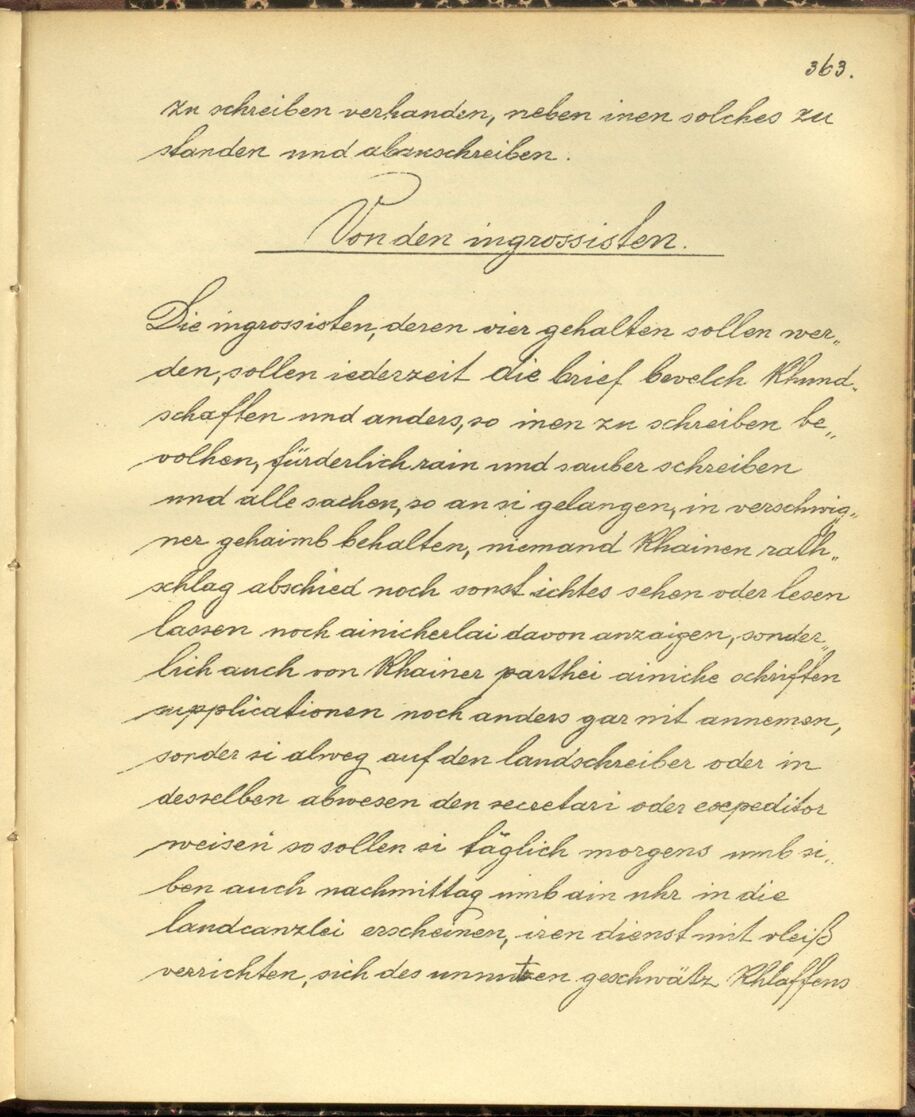 363.
zu schreiben verhanden, neben inen solches zu
standen und abzuschreiben.
Von den ingrossisten.
Die ingrossisten, deren vier gehalten sollen wer„
den, sollen iederzeit die brief bevelch Khund„
schaften und anders, so inen zu schreiben be„
volhen, fürderlich rain und sauber schreiben
und alle sachen, so an si gelangen, in verschwig„
ner gehaimb behalten, niemand Khainen rath„
schlag abschied noch sonst ichtes sehen oder lesen
lassen noch ainicherlai davon anzaigen, sonder„
lich auch von Khainer parthei ainiche schriften
supplicationen noch anders gar nit annemen,
sonder si alweg auf den landschreiber oder in
desselben abwesen den secretari oder expeditor
weisen so sollen si täglich morgens umb si„
ben auch nachmittag umb ain uhr in die
landcanzlei erscheinen, iren dienst mit vleiß
verrichten, sich des unnutzen geschwätz Khlaffens